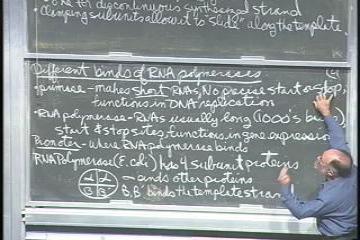 one for discontinuous synthesized strand
clamping subunits allow it to "slide" along the template
Different kinds of RNA polymerases
• primase - makes short RNAs, No precise start or stop,
functions in DNA replication
• RNA polymerase - RNAs usually long (1000's b
start & stop sites, functions in gene expression
Promoter - where RNA polymerase binds
RNA Polymerase (E. coli) has 4 subunit proteins
α α
β β'
- binds other proteins
β, β' binds the template stran